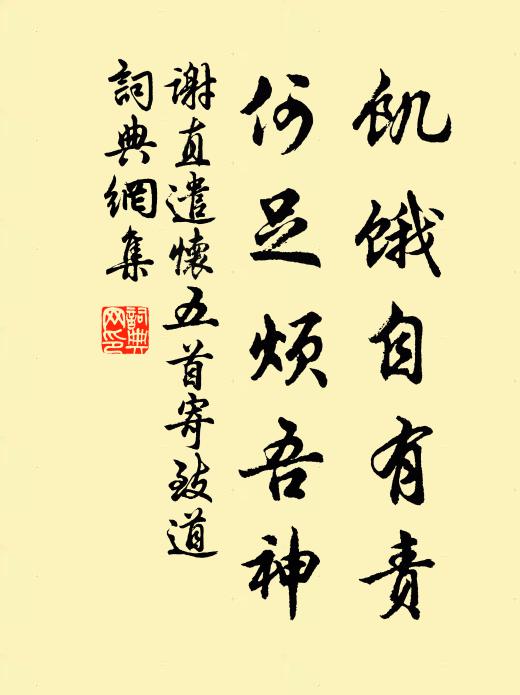 飢餓自有責
何足煩吾神
謝直遣懷五首寄致道
詞典網集
詞典
网印